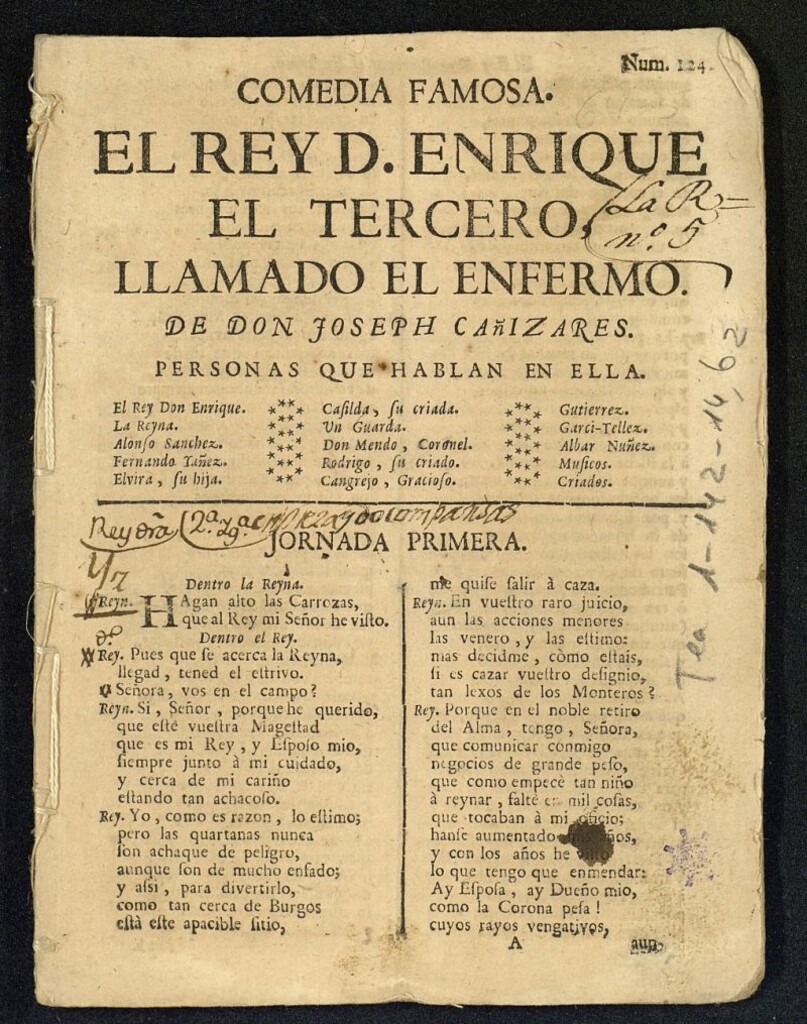 Num. 124.
COMEDIA FAMOSA.
EL REY D. ENRIQUE
EL TERCERO,
La R
nº. 5
LLAMADO EL ENFERMO.
DE DON JOSEPH CAñIZARES.
PERSONAS QUE HABLAN EN ELLA.
El Rey Don Enrique.
La Reyna.
Alonſo Sanchez.
Fernando Yañez.
Elvira, ſu hija.
Caſilda, ſu criada.
Un Guarda.
Don Mendo, Coronel.
Rodrigo, ſu criado.
Cangrejo, Gracioſo.
Gutierrez.
Garci-Tellez.
Albar Nuñez.
Muſicos.
Criados.
Tea 1-142-14, 62
JORNADA PRIMERA.
Dentro la Reyna.
Reyn. HAgan alto las Carrozas,
que al Rey mi Señor he viſto.
Dentro el Rey.
Rey. Pues que ſe acerca la Reyna,
llegad, tened el eſtrivo.
Señora, vos en el campo?
Reyn. Si, Señor, porque he querido,
que eſtè vueſtra Mageſtad
que es mi Rey, y Eſpoſo mio,
ſiempre junto à mi cuidado,
y cerca de mi cariño
eſtando tan achacoſo.
Rey. Yo, como es razon, lo eſtimo;
pero las quartanas nunca
ſon achaque de peligro,
aunque ſon de mucho enfado;
y aſsi, para divertirlo,
como tan cerca de Burgos
eſtà eſte apacible ſitio,
me quiſe ſalir à caza.
Reyn. En vueſtro raro juicio,
aun las acciones menores
las venero, y las eſtimo:
mas decidme, còmo eſtais,
ſi es cazar vueſtro deſignio,
tan lexos de los Monteros?
Rey. Porque en el noble retiro
del Alma, tengo, Señora,
que comunicar conmigo
negocios de grande peſo,
que como empecè tan niño
à reynar, faltè en mil coſas,
que tocaban à mi oficio;
hanſe aumentado
y con los años he
lo que tengo que enmendar:
Ay Eſpoſa, ay Dueño mio,
como la Corona peſa!
cuyos rayos vengativos,
A
aun